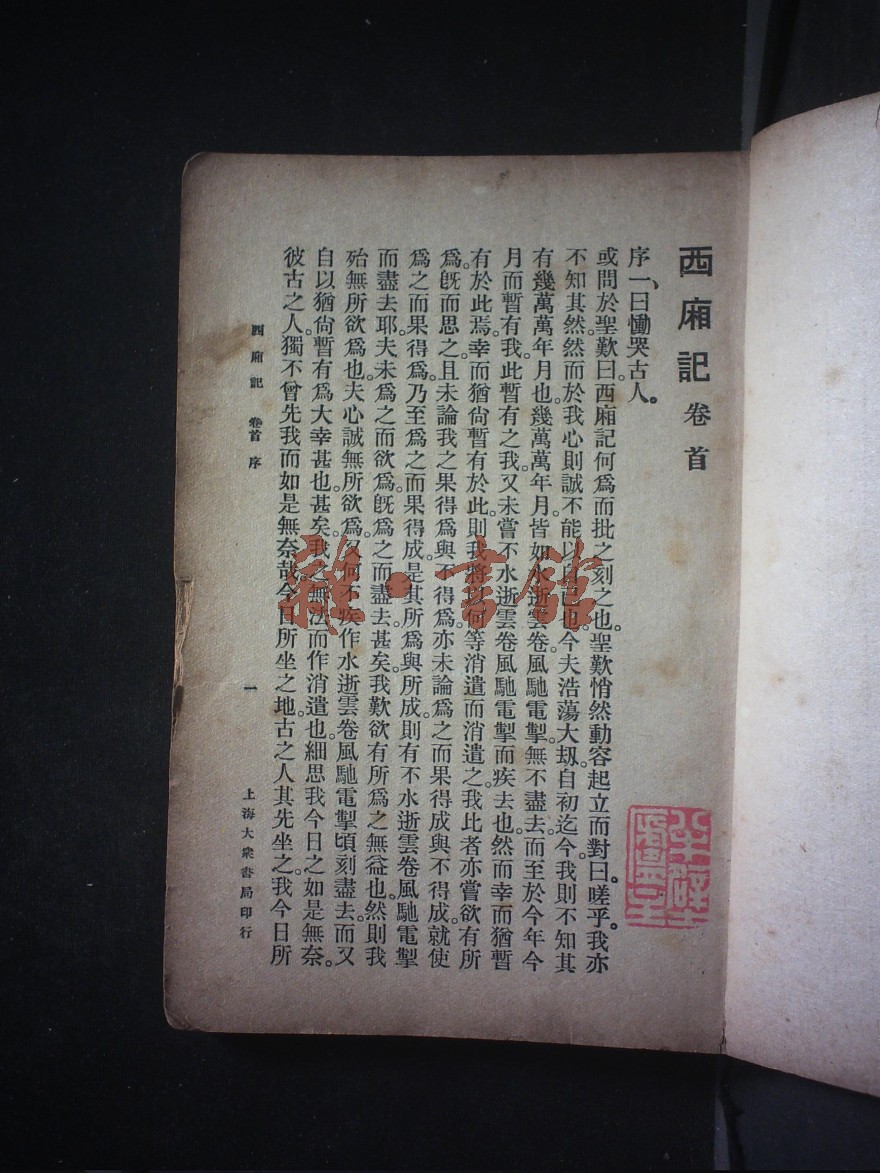 西廂記 卷首
序一、曰慟哭古人。
或問於聖歎曰。西廂記何爲而批之刻之也。聖歎悄然動容起立而對曰。嗟乎。我亦
不知其然。然而於我心則誠不能以自已也。今夫浩蕩大刧。自初迄今。我則不知其
有幾萬萬年月也。幾萬萬年月。皆如水逝雲卷。風馳電掣。無不盡去。而至於今年今
月而暫有我。此暫有之我。又未嘗不水逝雲卷風馳電掣而疾去也。然而幸而猶暫
有於此焉。幸而猶尙暫有於此。則我將以何等消遣而消遣之。我比者亦嘗欲有所
爲。旣而思之。且未論我之果得爲與不得爲。亦未論爲之而果得成與不得成。就使
爲之而果得爲。乃至爲之而果得成。是其所爲與所成。則有不水逝雲卷風馳電掣
而盡去耶。夫未爲之而欲爲。旣爲之而盡去。甚矣。我歎欲有所爲之無益也。然則我
殆無所欲爲也。夫心誠無所欲爲。又何不疾作水逝雲卷風馳電掣頃刻盡去。而又
自以猶尙暫有爲大幸甚也。甚矣。我之無法而作消遣也。細思我今日之如是無奈。
彼古之人。獨不曾先我而如是無奈哉。今日所坐之地。古之人其先坐之。我今日所
西廂記 卷首 序
一
上海大衆書局印行
雜·書館